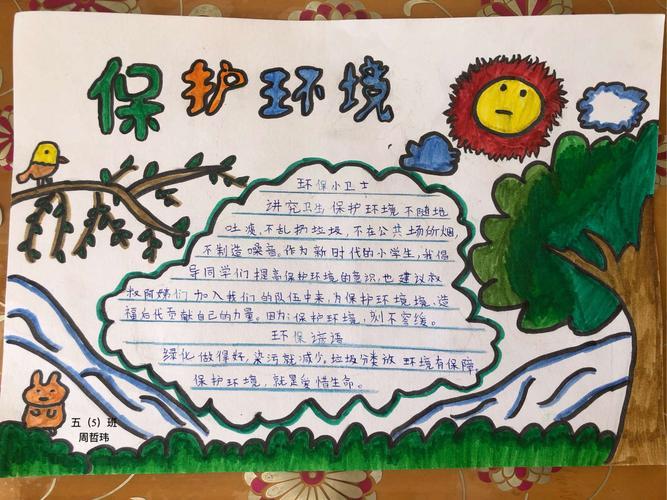 保护环境
环保小卫士
讲究卫生保护环境不随地
吐痰,不乱扔垃圾,不在公共场所烟
不制造噪音。作为新时代的小学生,我倡
导同学们提高保护环境的意识,也建议叔
叔阿姨们加入我们的队伍中来,为保护环境境,造
福后代贡献自己的力量。因为:保护环境,刻不容缓。
环保谚语
绿化做得好,染污就减少。垃圾分类放 环境有保障
保护环境,就是爱惜生命。
五(5)班
周哲玮